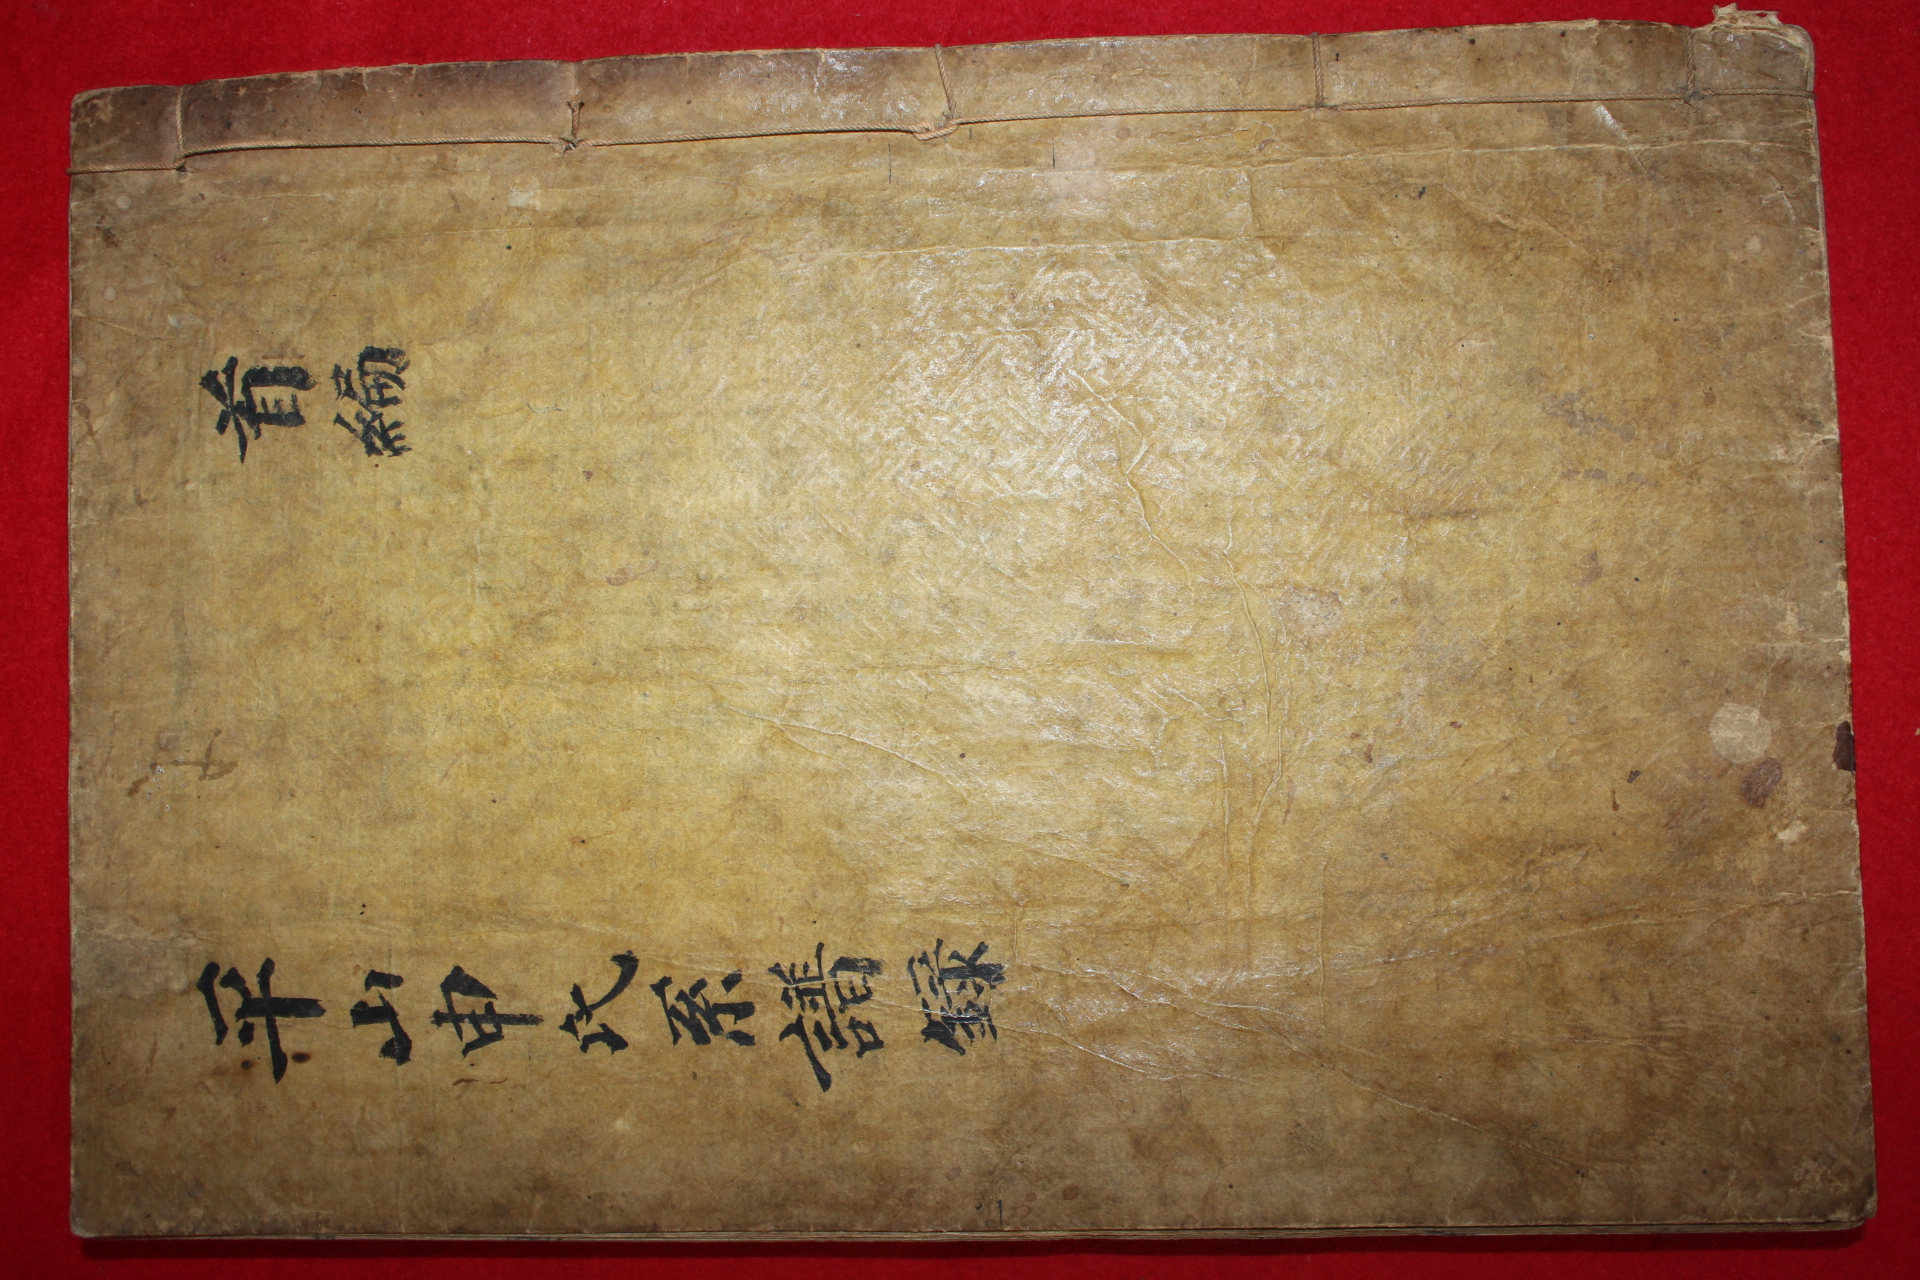 平山申氏系譜錄
首編